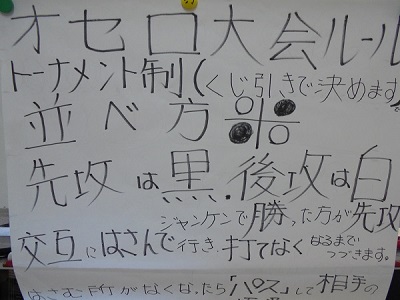 オセロ大会ルール
トーナメント制(くじ引きで決めます)
並べ方
先攻は黒.後攻は白
ジャンケンで勝った方が先攻
交互にはさんで行き、打てなくなるまでつづきます。
はさむ所がなくなったら「パス」して相手の